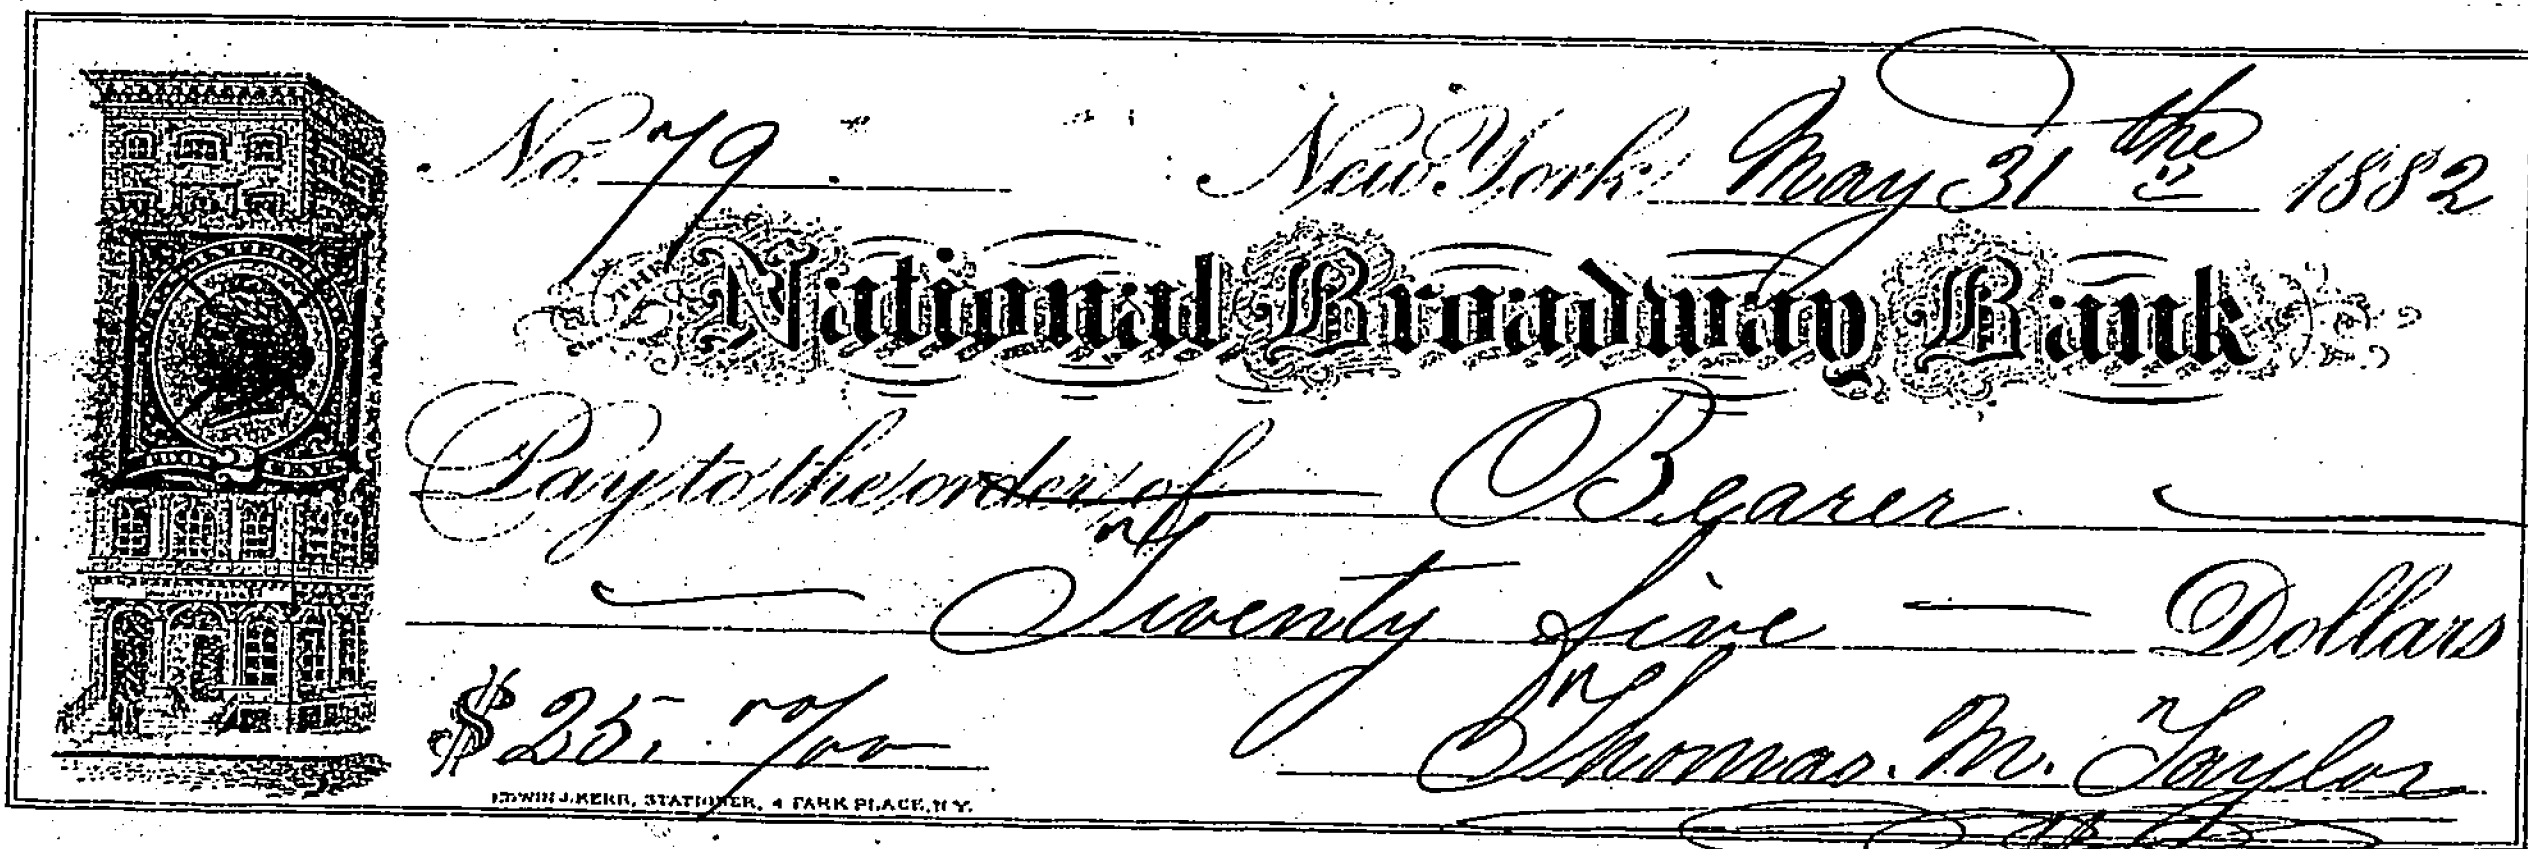 No. 79 New York May 31 the 1882
THE National Broadway Bank
Pay to the order of Bearer
Twenty five Dollars
$ 25. 00/00 Thomas. M. Taylor
EDWIN J. KERR, STATIONER, 4 PARK PLACE, N.Y.